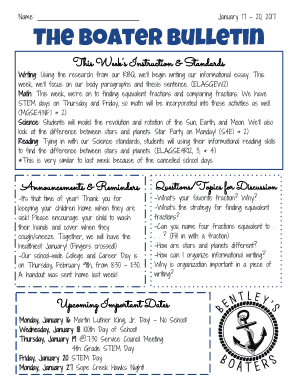 Name: January 17 - 20, 2017
THE BOATER BULLETIN
This Week's Instruction & Standards
Writing: Using the research from our RBQ, we'll begin writing our informational essay. This
week, we'll focus on our body paragraphs and thesis sentence. (ELAGSEW2)
Math: This week, we're on to finding equivalent fractions and comparing fractions. We have
STEM days on Thursday and Friday, so math will be incorporated into those activities as well.
(MGSE4NF1 + 2)
Science: Students will model the revolution and rotation of the Sun, Earth, and Moon. We'll also
look at the difference between stars and planets. Star Party on Monday! (S4E1 + 2)
Reading: Tying in with our Science standards, students will using their informational reading skills
to find the difference between stars and planets. (ELAGSE4RI2, 3, + 4)
*This is very similar to last week because of the cancelled school days.
Announcements & Reminders
-It's that time of year! Thank you for
keeping your children home when they are
sick! Please encourage your child to wash
their hands and cover when they
cough/sneeze. Together, we will have the
healthiest January! (Fingers crossed!)
-Our school-wide College and Career Day is
on Thursday, February 9th, from 8:30 - 11:30.
A handout was sent home last week!
Questions/Topics for Discussion
-What's your favorite fraction? Why?
-What's the strategy for finding equivalent
fractions?
-Can you name four fractions equivalent to
? (Fill in with a fraction)
-How are stars and planets different?
-How can I organize informational writing?
-Why is organization important in a piece of
writing?
Upcoming Important Dates
Monday, January 16 Martin Luther King, Jr. Day - No School!
Wednesday, January 18 100th Day of School!
Thursday, January 19 @7:30 Service Council Meeting
4th Grade STEM Day
Friday, January 20 STEM Day
Monday, January 27 Sope Creek Hawks Night!
BENTLEY'S
BOATERS